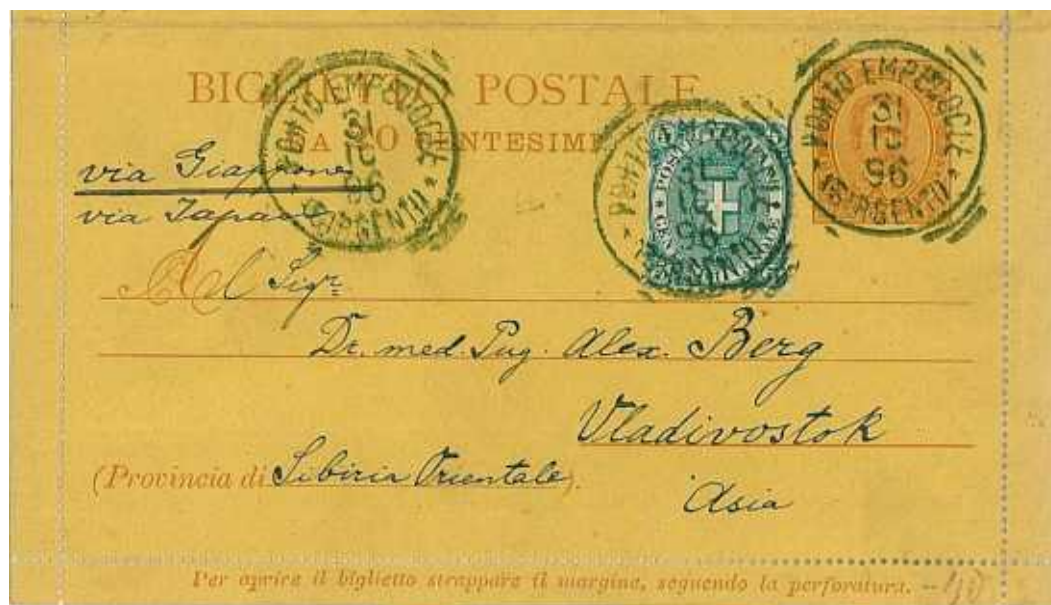 BIGLIETTO POSTALE
DA 20 CENTESIMI
PORTO EMPEDOCLE
31
12
96
*GIRGENTI*
PORTO EMPEDOCLE
31
12
96
*GIRGENTI*
PORTO EMPEDOCLE
31
12
96
*GIRGENTI*
POSTE ITALIANE
via Giappone
via Japan
Al Sigr
Dr. med. Pug. Alex. Berg
Vladivostok
(Provincia di Sibiria Orientale).
Asia
Per aprire il biglietto strappare il margine, seguendo la perforatura.